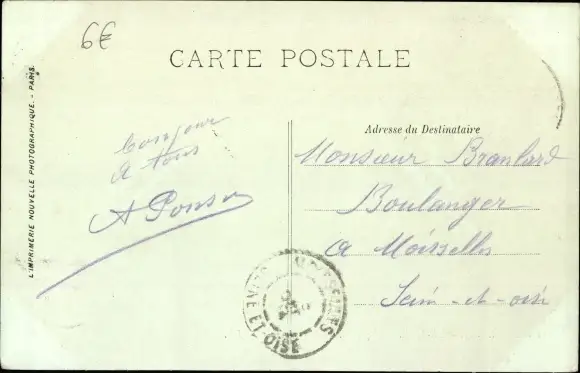 6€
CARTE POSTALE
L'IMPRIMERIE NOUVELLE PHOTOGRAPHIQUE. - PARIS.
bonjour
a tous
A Ponsa
Adresse du Destinataire
Monsieur Branlard
Boulanger
a Moisselles
Sein-et-oise
ET-OISE